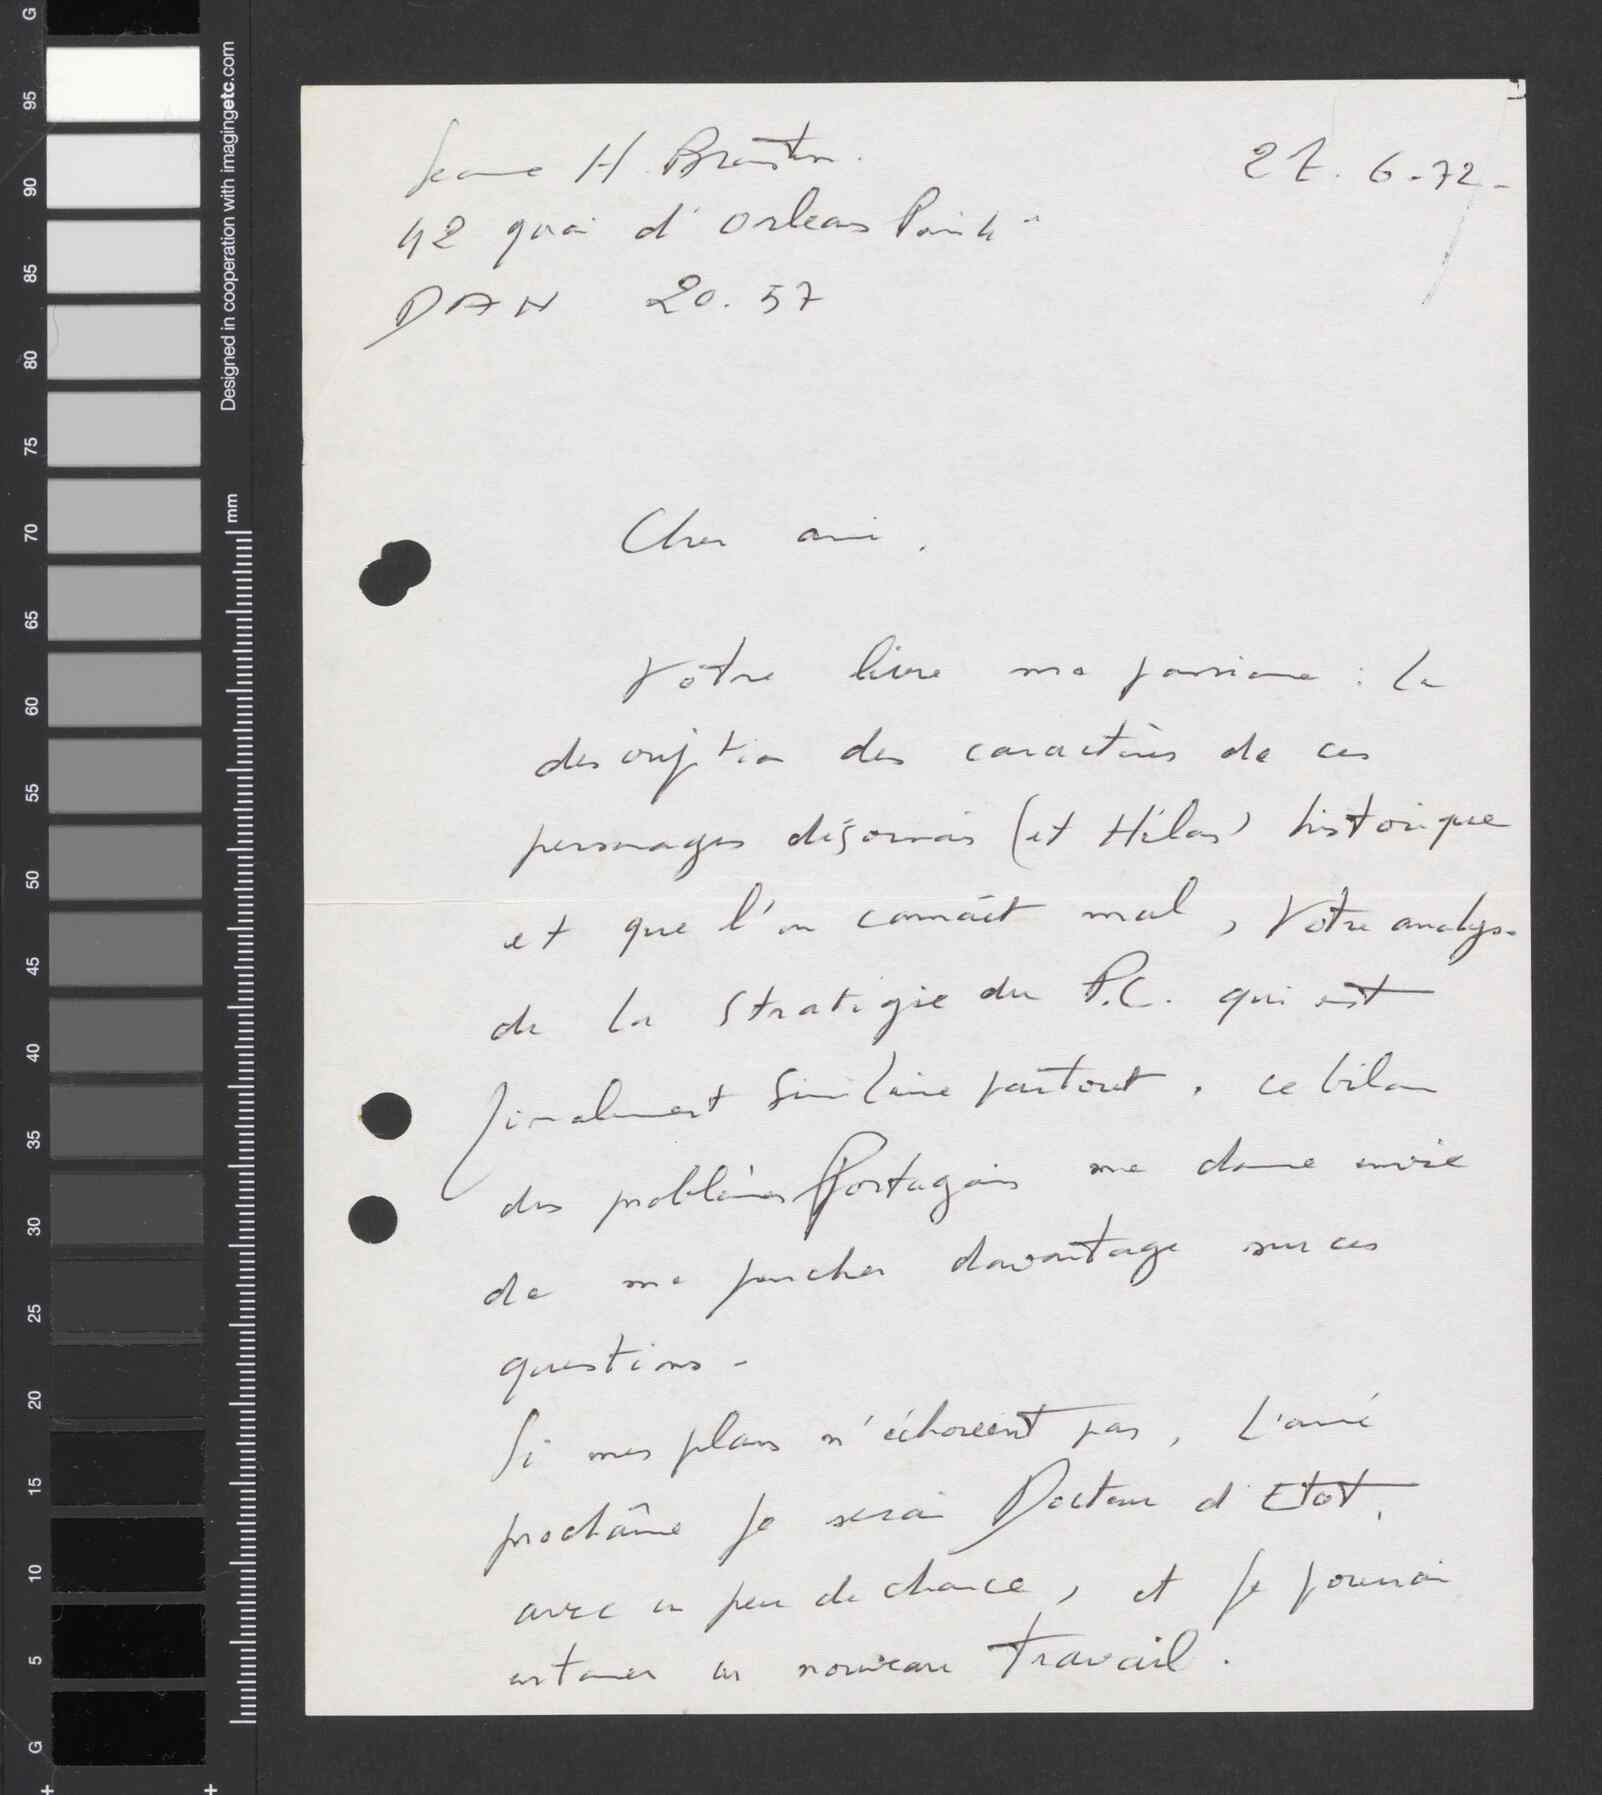 Jeanne H. Branten. 27.6.72-
42 quai d'Orleans Paris 4e
DAN 20.57
Cher ami,
Votre livre me passionne : la
description des caractères de ces
personnages désormais (et Hélas) historique
et que l'on connaît mal, Votre analyse
de la Stratégie du P.C. qui est
finalement similaire partout, ce bilan
des problèmes Portugais me donne envie
de me pencher davantage sur ces
questions-
Si mes plans n'échouent pas, l'anné
prochaîne je serai Docteur d'Etat,
avec un peu de chance, et je pourrai
entamer un nouveau Travail.
Designed in cooperation with imagingetc.com
mm
G
95
90
85
80
75
70
65
60
55
50
45
40
35
30
25
20
15
10
5
G